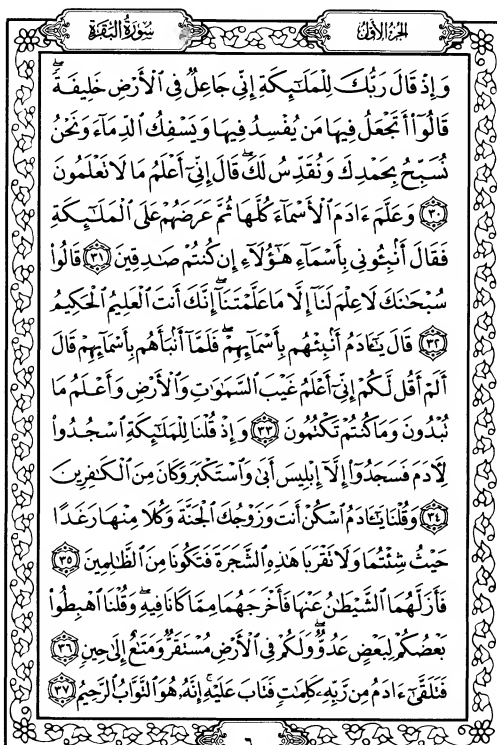 سُورَةُ البَقَرَةِ
الجُزءُ الأَوَّلُ
وَإِذْ قَالَ رَبُّكَ لِلْمَلَٰٓئِكَةِ إِنِّي جَاعِلٌ فِي ٱلْأَرْضِ خَلِيفَةً ۖ
قَالُوٓا۟ أَتَجْعَلُ فِيهَا مَن يُفْسِدُ فِيهَا وَيَسْفِكُ ٱلدِّمَآءَ وَنَحْنُ
نُسَبِّحُ بِحَمْدِكَ وَنُقَدِّسُ لَكَ ۖ قَالَ إِنِّيٓ أَعْلَمُ مَا لَا تَعْلَمُونَ
٣٠ وَعَلَّمَ ءَادَمَ ٱلْأَسْمَآءَ كُلَّهَا ثُمَّ عَرَضَهُمْ عَلَى ٱلْمَلَٰٓئِكَةِ
فَقَالَ أَنۢبِـُٔونِي بِأَسْمَآءِ هَٰٓؤُلَآءِ إِن كُنتُمْ صَٰدِقِينَ ٣١ قَالُوا۟
سُبْحَٰنَكَ لَا عِلْمَ لَنَآ إِلَّا مَا عَلَّمْتَنَآ ۖ إِنَّكَ أَنتَ ٱلْعَلِيمُ ٱلْحَكِيمُ
٣٢ قَالَ يَٰٓـَٔادَمُ أَنۢبِئْهُم بِأَسْمَآئِهِمْ ۖ فَلَمَّآ أَنۢبَأَهُم بِأَسْمَآئِهِمْ قَالَ
أَلَمْ أَقُل لَّكُمْ إِنِّيٓ أَعْلَمُ غَيْبَ ٱلسَّمَٰوَٰتِ وَٱلْأَرْضِ وَأَعْلَمُ مَا
تُبْدُونَ وَمَا كُنتُمْ تَكْتُمُونَ ٣٣ وَإِذْ قُلْنَا لِلْمَلَٰٓئِكَةِ ٱسْجُدُوا۟
لِـَٔادَمَ فَسَجَدُوٓا۟ إِلَّآ إِبْلِيسَ أَبَىٰ وَٱسْتَكْبَرَ وَكَانَ مِنَ ٱلْكَٰفِرِينَ
٣٤ وَقُلْنَا يَٰٓـَٔادَمُ ٱسْكُنْ أَنتَ وَزَوْجُكَ ٱلْجَنَّةَ وَكُلَا مِنْهَا رَغَدًا
حَيْثُ شِئْتُمَا وَلَا تَقْرَبَا هَٰذِهِ ٱلشَّجَرَةَ فَتَكُونَا مِنَ ٱلظَّٰلِمِينَ ٣٥
فَأَزَلَّهُمَا ٱلشَّيْطَٰنُ عَنْهَا فَأَخْرَجَهُمَا مِمَّا كَانَا فِيهِ ۖ وَقُلْنَا ٱهْبِطُوا۟
بَعْضُكُمْ لِبَعْضٍ عَدُوٌّ ۖ وَلَكُمْ فِي ٱلْأَرْضِ مُسْتَقَرٌّ وَمَتَٰعٌ إِلَىٰ حِينٍ ٣٦
فَتَلَقَّىٰٓ ءَادَمُ مِن رَّبِّهِۦ كَلِمَٰتٍ فَتَابَ عَلَيْهِ ۚ إِنَّهُۥ هُوَ ٱلتَّوَّابُ ٱلرَّحِيمُ ٣٧
٦